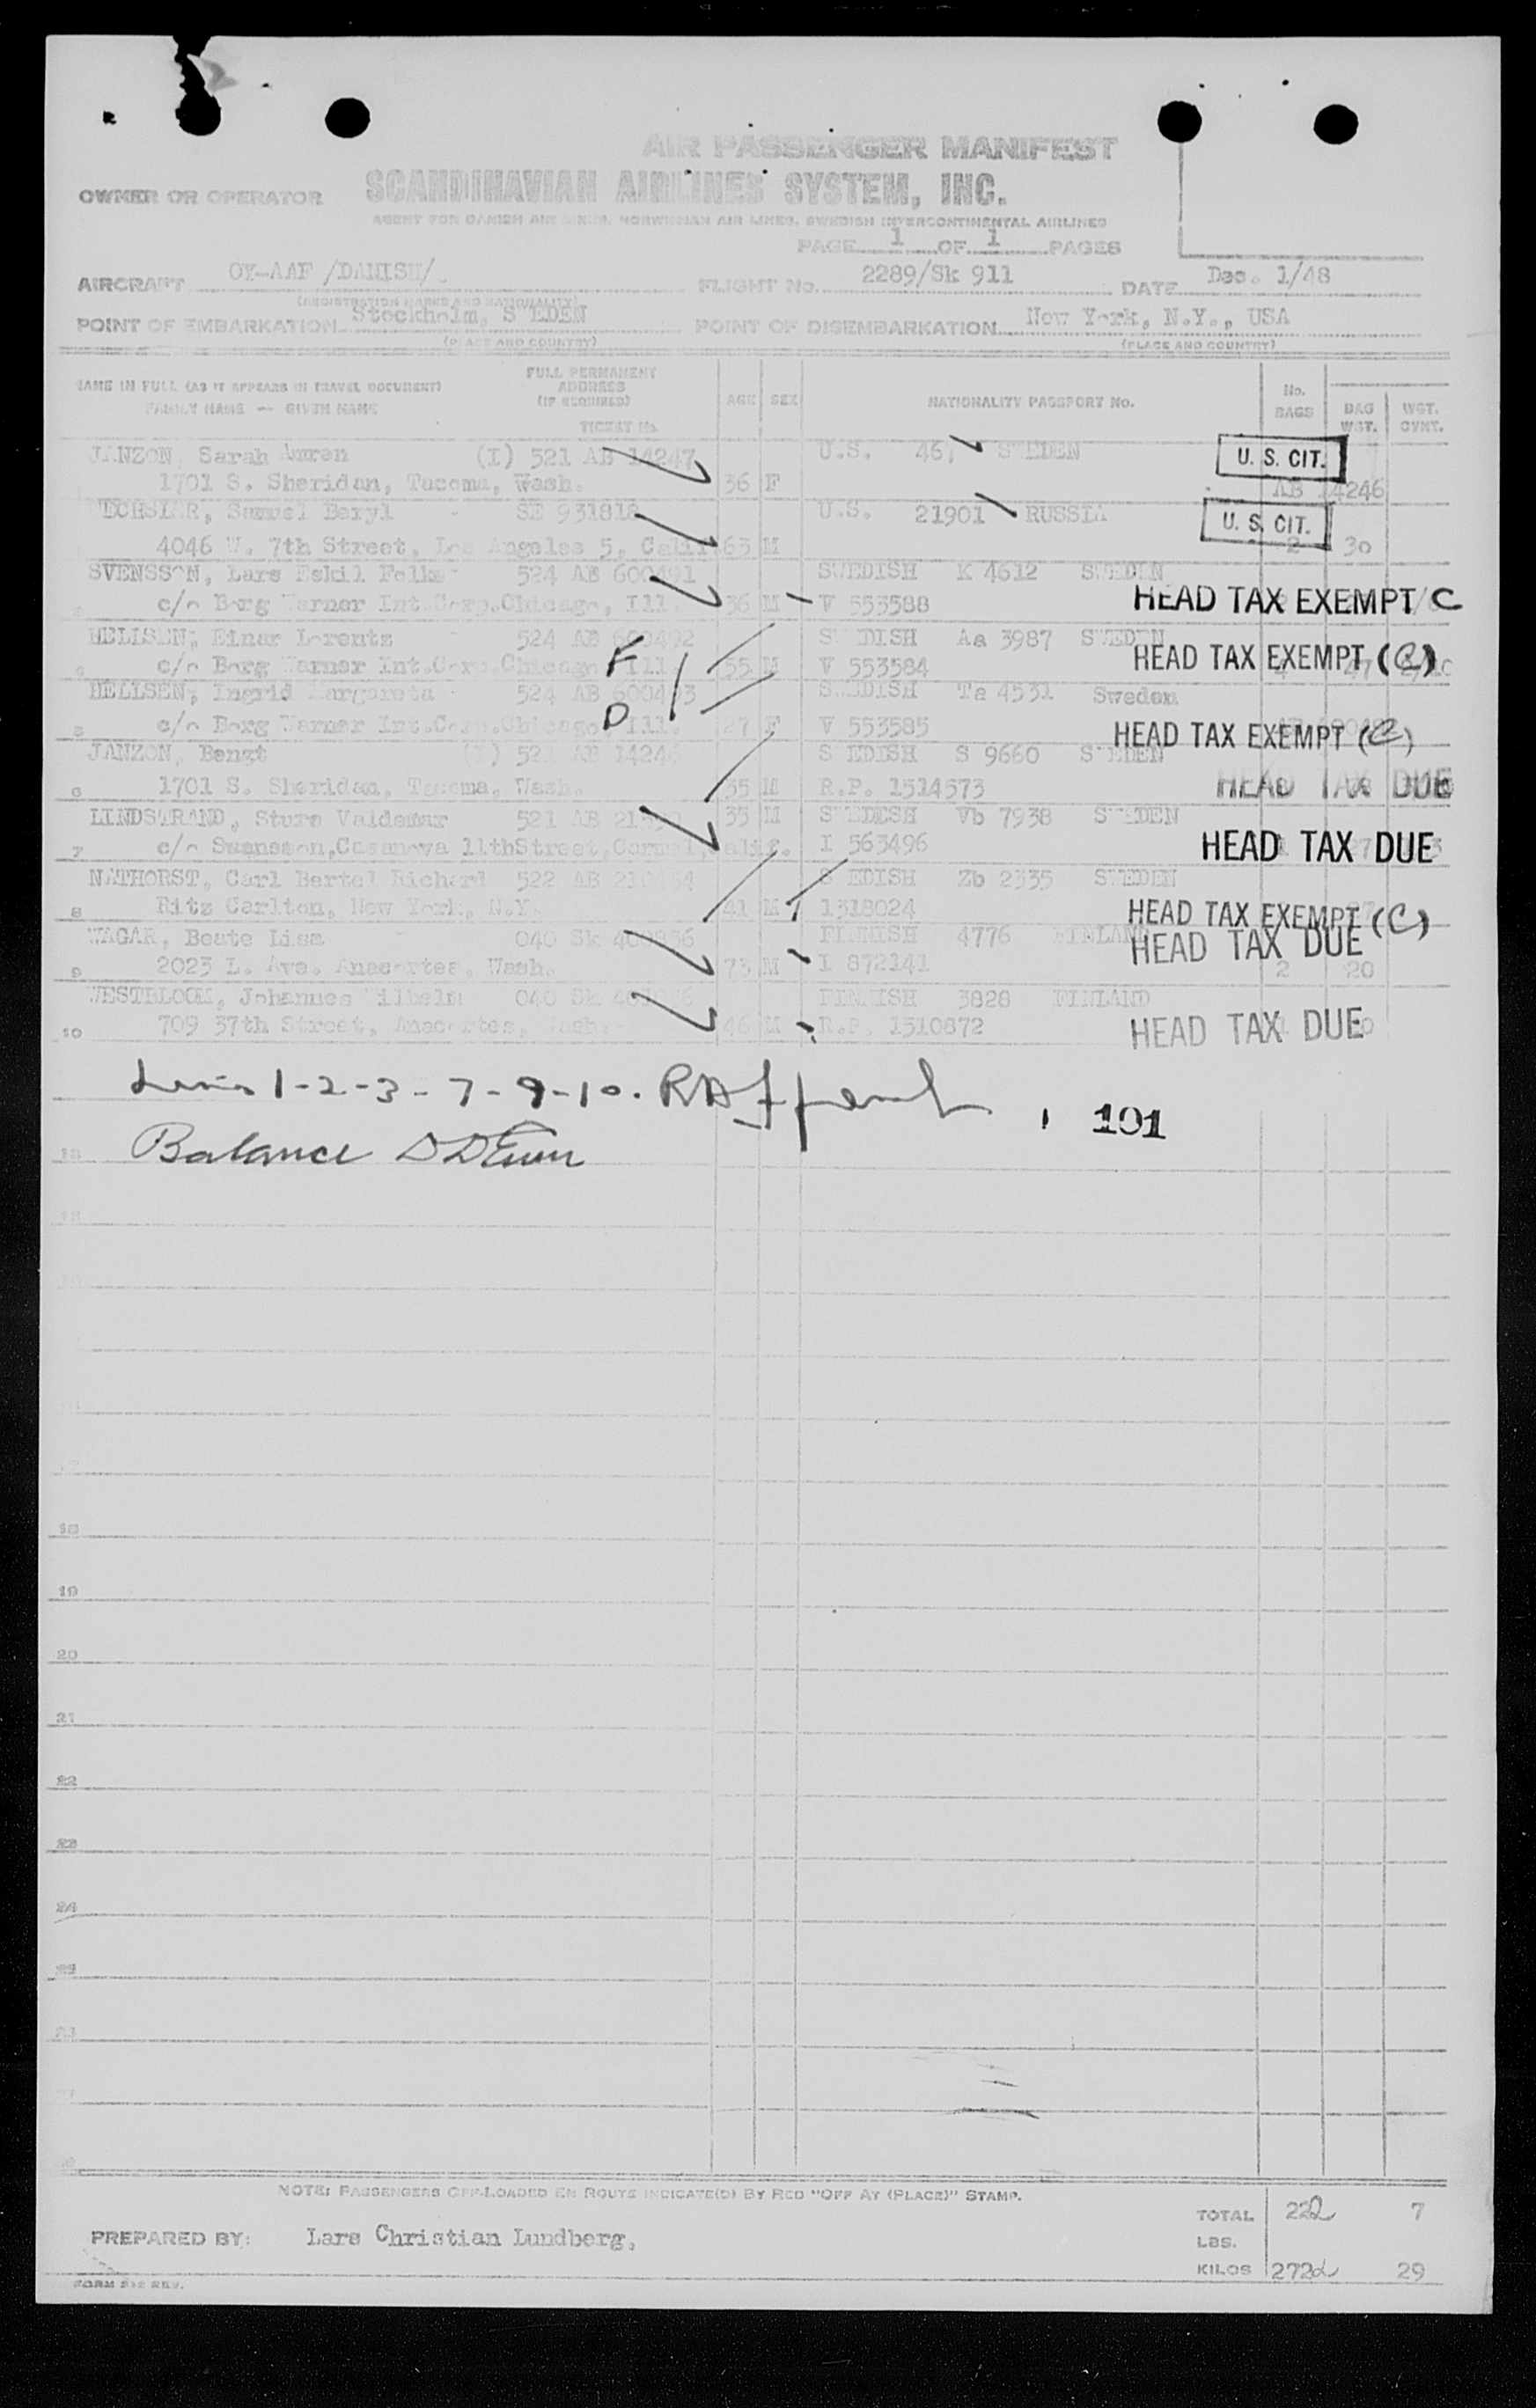 AIR PASSENGER MANIFEST
OWNER OR OPERATOR SCANDINAVIAN AIRLINES SYSTEM, INC.
AGENT FOR DANISH AIR LINES, NORWEGIAN AIR LINES, SWEDISH INTERCONTINENTAL AIRLINES
PAGE 1 OF 1 PAGES
AIRCRAFT OY-AAF /DANISH/ FLIGHT No. 2289/Sk 911 DATE Dec. 1/48
(REGISTRATION MARKS AND NATIONALITY)
POINT OF EMBARKATION Stockholm, SWEDEN POINT OF DISEMBARKATION New York, N.Y., USA
(PLACE AND COUNTRY) (PLACE AND COUNTRY)
NAME IN FULL (AS IT APPEARS IN TRAVEL DOCUMENT)
FAMILY NAME — GIVEN NAME
FULL PERMANENT
ADDRESS
(IF REQUIRED)
TICKET No.
AGE SEX NATIONALITY PASSPORT No. No. BAGS BAG WGT. WGT. OVWT.
JANZON, Sarah (I) 521 AB 14247 U.S. 467 SWEDEN U. S. CIT.
1701 S. Sheridan, Tacoma, Wash. 36 F AB 14246
Samuel Beryl SE 931818 U.S. 21901 RUSSIA U. S. CIT.
4046 W. 7th Street, Los Angeles 5, Calif 63 M 2 30
SVENSSON, Lars Eskil Folke 524 AB 600491 SWEDISH K 4612 SWEDEN
c/o Borg Warner Int.Corp.Chicago, Ill. 36 M V 553588 HEAD TAX EXEMPT C
Einar Lorentz 524 AB 600492 SWEDISH Aa 3987 SWEDEN
4 c/o Borg Warner Int.Corp.Chicago, Ill F 55 M V 553584 HEAD TAX EXEMPT (C)
Ingrid Margareta 524 AB 600493 SWEDISH Ta 4531 Sweden
5 c/o Borg Warner Int.Corp.Chicago, Ill D 27 F V 553585 HEAD TAX EXEMPT (C)
JANZON, Bengt (I) 521 AB 1424 SWEDISH S 9660 SWEDEN
6 1701 S. Sheridan, Tacoma, Wash. 35 M R.P. 1514573 HEAD TAX DUE
LINDSTRAND, Sture Valdemar 521 AB 35 M SWEDISH Vb 7938 SWEDEN
7 c/o Swensson,Casanova 11thStreet,Carmel,Calif. I 563496 HEAD TAX DUE
NATHORST, Carl Bertel Richard 522 AB SWEDISH Zb 2335 SWEDEN
8 Ritz Carlton, New York, N.Y. 41 M 1318024 HEAD TAX EXEMPT (C)
WAGAR, Beate Lisa 040 Sk FINNISH 4776 FINLAND HEAD TAX DUE
9 2023 L. Ave. Anacortes, Wash. 73 M I 872141 2 20
WESTBLOOM, Johannes Vilhelm 040 Sk FINNISH 3828 FINLAND
10 709 37th Street, Anacortes, Wash. 46 M R.P. 1510872 HEAD TAX DUE
1-2-3-7-9-10.
101
Balance
18
19
20
21
22
23
24
25
NOTE: PASSENGERS OFF-LOADED EN ROUTE INDICATE(D) BY RED "OFF AT (PLACE)" STAMP.
PREPARED BY: Lars Christian Lundberg,
TOTAL 222 7
LBS.
KILOS 272 29